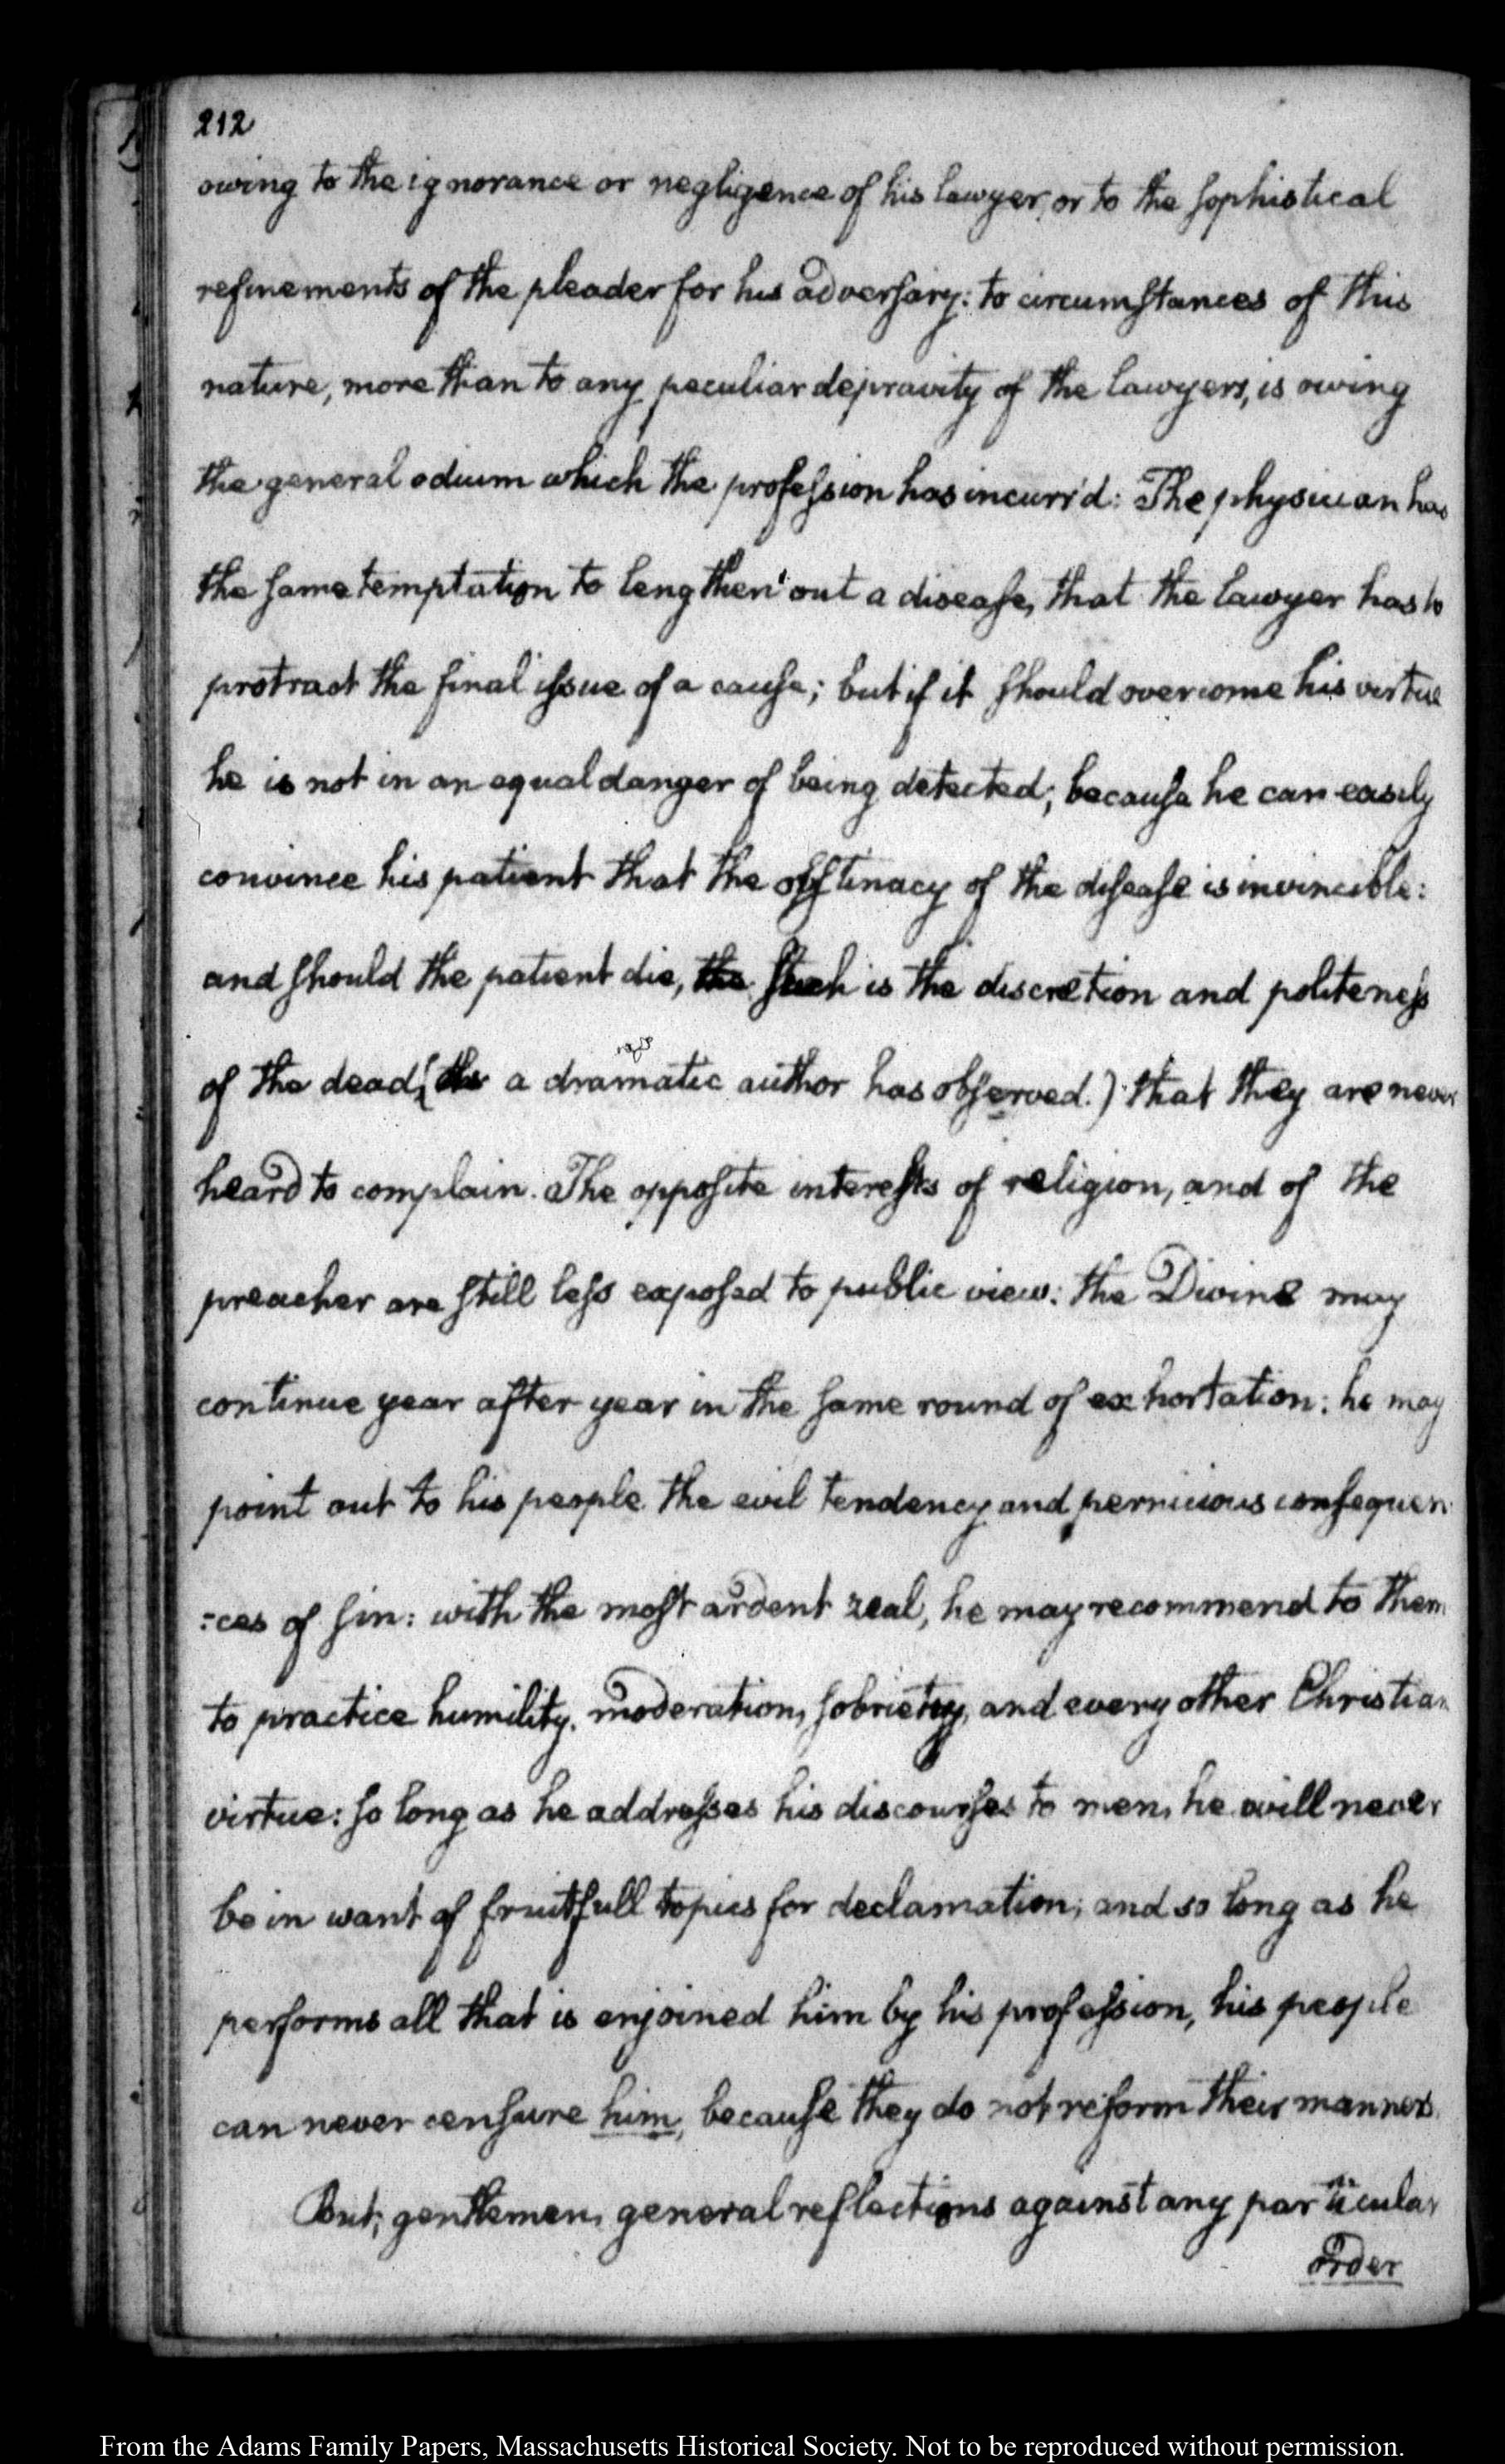 212
owing to the ignorance or negligence of his lawyer, or to the sophistical
refinements of the pleader for his adversary: to circumstances of this
nature, more than to any peculiar depravity of the lawyers, is owing
the general odium which the profession has incurr'd: The physician has
the same temptation to lengthen out a disease, that the lawyer has to
protract the final issue of a cause; but if it should overcome his virtue
he is not in an equal danger of being detected; because he can easily
convince his patient that the obstinacy of the disease is invincible:
and should the patient die, the such is the discretion and politeness
of the dead, (as a dramatic author has observed.) that they are never
heard to complain. The opposite interests of religion, and of the
preacher are still less exposed to public view: the Divine may
continue year after year in the same round of exhortation: he may
point out to his people the evil tendency and pernicious consequen
:ces of sin: with the most ardent zeal, he may recommend to them
to practice humility, moderation, sobriety, and every other Christian
virtue: so long as he addresses his discourses to men, he will never
be in want of fruitfull topics for declamation; and so long as he
performs all that is enjoined him by his profession, his people
can never censure him, because they do not reform their manners.
But, gentlemen, general reflections against any particular
order
From the Adams Family Papers, Massachusetts Historical Society. Not to be reproduced without permission.